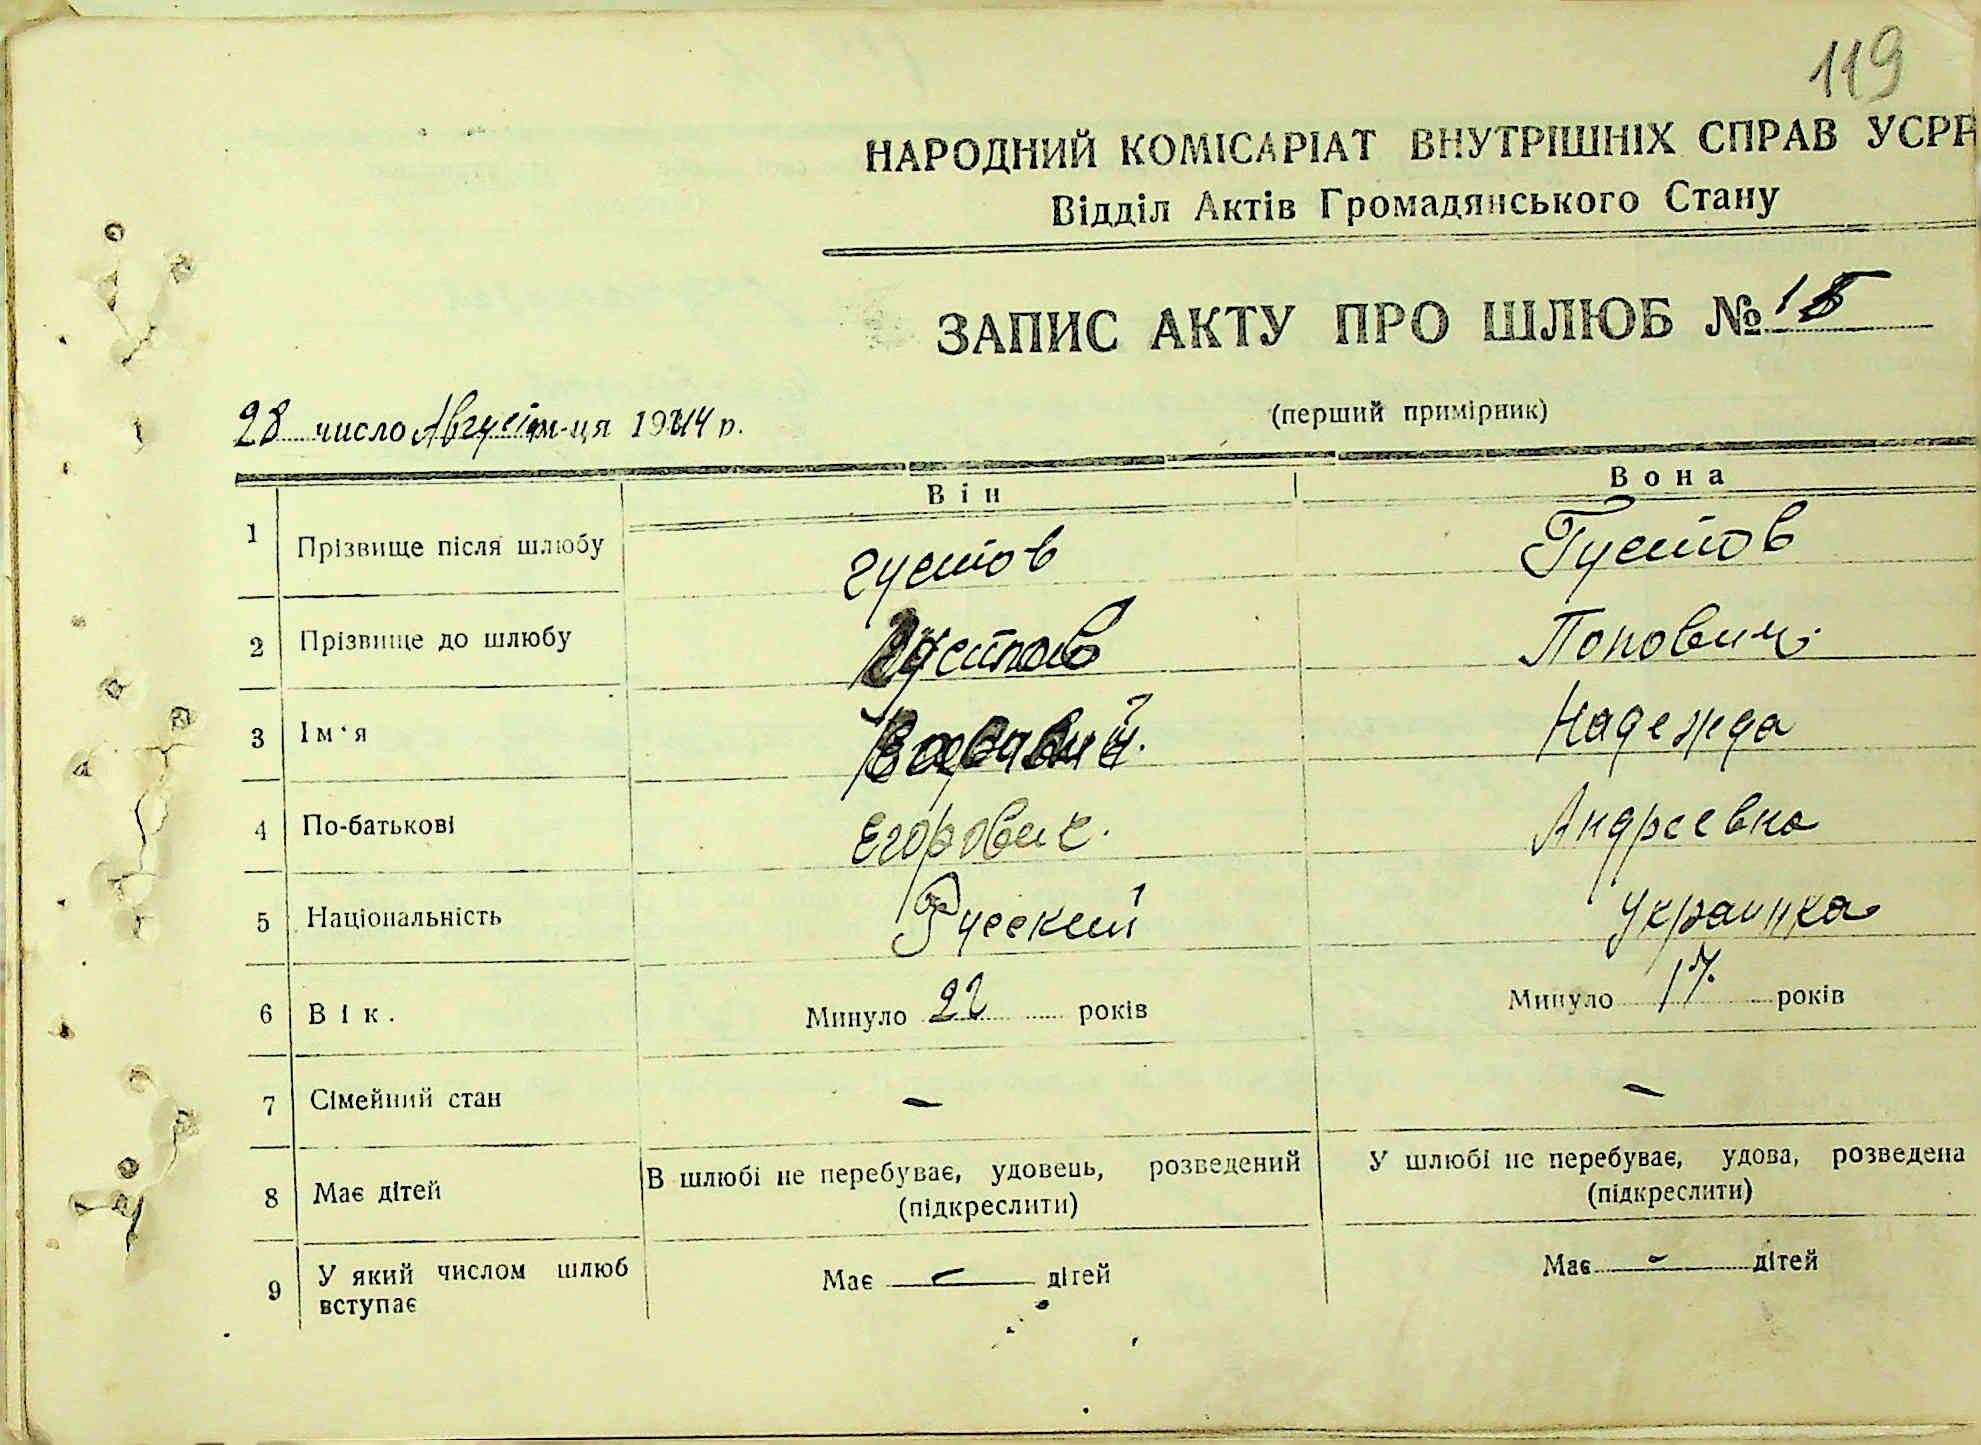 119
НАРОДНИЙ КОМІСАРІАТ ВНУТРІШНІХ СПРАВ УСРР
Відділ Актів Громадянського Стану
ЗАПИС АКТУ ПРО ШЛЮБ №
(перший примірник)
28 число Август м-ця 1944 р.
Він Вона
1 Прізвище після шлюбу Густов Густов
2 Прізвище до шлюбу Густов Попович
3 Ім'я Надежда
4 По-батькові Егорович. Андреевна
5 Національність Русский Украинка
6 Вік. Минуло 22 років Минуло 17. років
7 Сімейний стан - -
8 Має дітей В шлюбі не перебуває, удовець, розведений У шлюбі не перебуває, удова, розведена
(підкреслити) (підкреслити)
9 У який числом шлюб Має - дітей Має - дітей
вступає